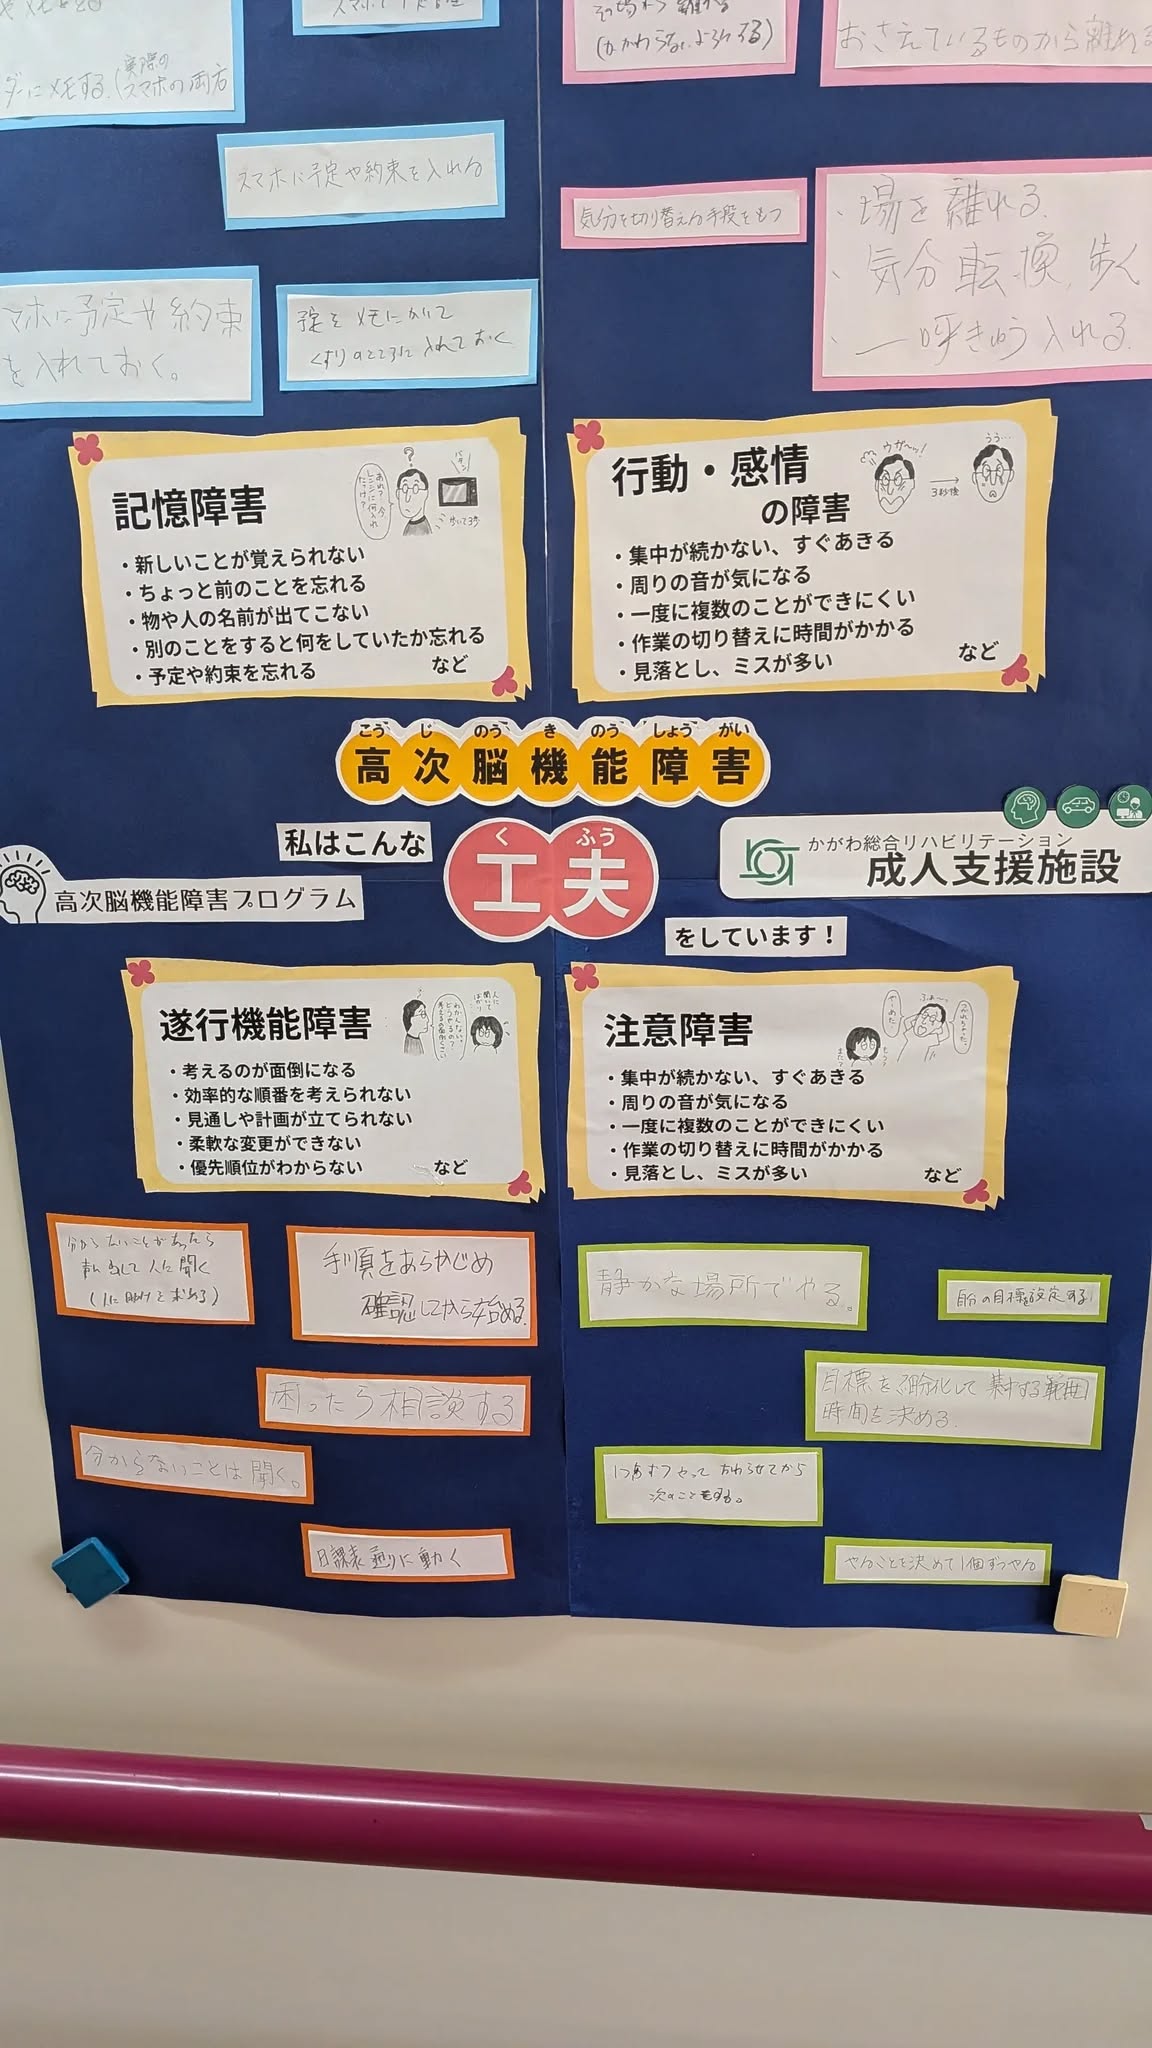 ダーにメモする。(実際の
スマホの両方
(かかわらないようにする)
おさえているものから離れる
スマホに予定や約束を入れる
気分を切り替える手段をもつ
・場を離れる。
・気分転換、歩く
・一呼きゅう入れる。
マホに予定や約束
を入れておく。
予定をメモにかいて
くすりのところに入れておく
記憶障害
?
あれ?今
レンジに何入れ
たっけ?
バタン
歩いて3歩
・新しいことが覚えられない
・ちょっと前のことを忘れる
・物や人の名前が出てこない
・別のことをすると何をしていたか忘れる
・予定や約束を忘れる
など
行動・感情
の障害
ウガーッ!
3秒後
うう…
・集中が続かない、すぐあきる
・周りの音が気になる
・一度に複数のことができにくい
・作業の切り替えに時間がかかる
・見落とし、ミスが多い
など
こう じ のう き のう しょう がい
高次脳機能障害
私はこんな
く ふう
工夫
をしています!
高次脳機能障害プログラム
かがわ総合リハビリテーション
成人支援施設
遂行機能障害
わかんない。
どうやるの?
考えるの面倒くさい
人に
聞いて
ばかり
・考えるのが面倒になる
・効率的な順番を考えられない
・見通しや計画が立てられない
・柔軟な変更ができない
・優先順位がわからない
など
注意障害
・集中が続かない、すぐあきる
・周りの音が気になる
・一度に複数のことができにくい
・作業の切り替えに時間がかかる
・見落とし、ミスが多い
など
分からないことがあったら
声出して人に聞く
(人に助けを求める)
手順をあらかじめ
確認してから始める。
困ったら相談する
分からないことは聞く。
日課表通りに動く
静かな場所でやる。
自分の目標を設定する
目標を細分化して集中する範囲
時間を決める。
1つずつやっておわらせてから
次のことをする。
やることを決めて1個ずつやる